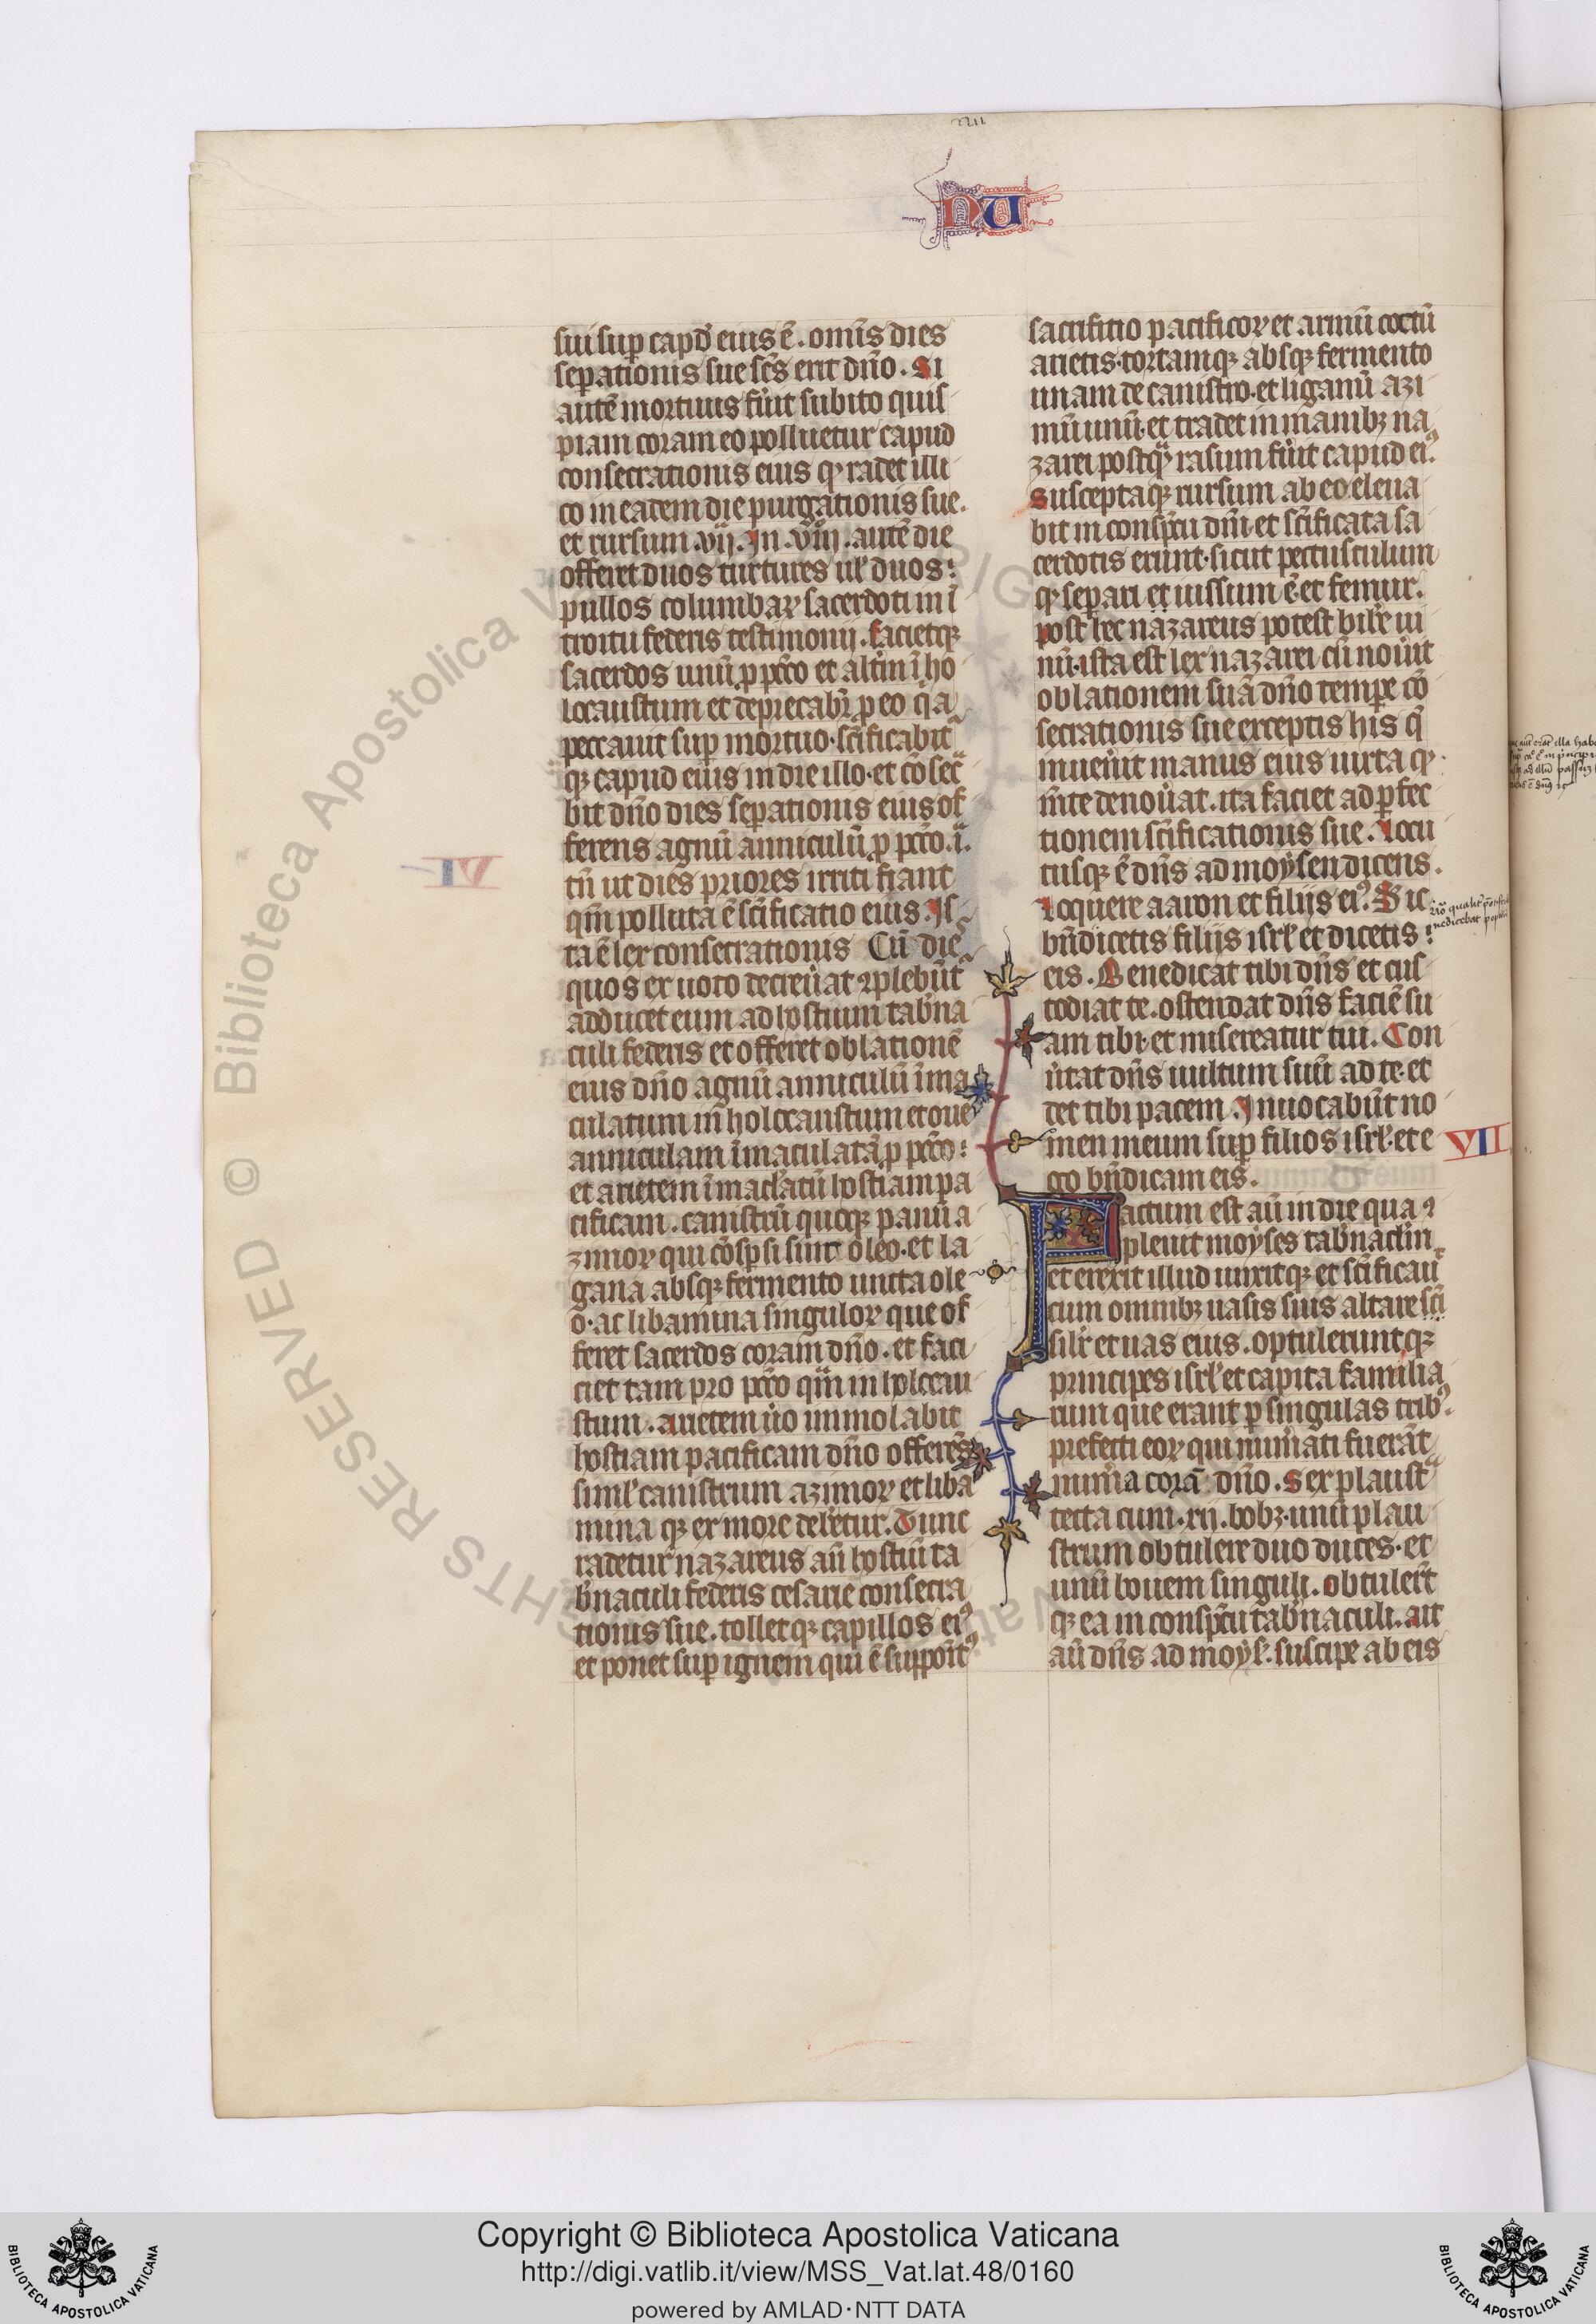 NU
sui sup capđ eius ē. omīs dies
sepationis sue scs erit dño. Si
autē mortuus fuīt subito quis
piam coram eo polluetur capud
consecrationis eius qꝫ radet illi
co in eadem die purgationis sue.
et rursum .vij. In .viij. autē die
offeret duos turtures ul duos
pullos columbaꝝ sacerdoti in ī
troitu federis testimonij. facietqꝫ
sacerdos unū p pctō et altīm ī ho
locaustum et deprecabīt p eo qa
peccauit sup mortuo. scīficabit
qꝫ capud eius in die illo. et cōsec
bit dño dies sepationis eius of
ferens agnū anniculū p pctō. ī
tn̄ ut dies priores irriti fiant
qm̄ polluta ē scīficatio eius. Is
ta ē lex consecrationis Cū die
quos ex uoto decreūat ꝯplebūt
adducet eum ad hostium tabna
culi federis et offeret oblationē
eius dño agnū anniculū īma
culatum in holocaustum et oue
anniculam īmaculatā p pctō
et arietem īmaclatū hostiam pa
cificam. canistrū quoqꝫ panū a
zimoꝝ qui cōspsi sint oleo. et la
gana absqꝫ fermento uncta ole
o. ac libamina singuloꝝ que of
feret sacerdos coram dño. et faci
ciet tam pro pctō qm̄ in holocau
stum. arietem uo immolabit
hostiam pacificam dño offerēs
siml canistrum azimoꝝ et liba
mina qꝫ ex more debetur. Tunc
radetur nazareus an̄ hostiū ta
bnaculi federis cesarie consecra
tionis sue. tolletqꝫ capillos ei⁹
et ponet sup ignem qui ē suppoīt⁹
sacrificio pacificoꝝ et armū coctū
arietis. tortamqꝫ absqꝫ fermento
unam de canistro. et liganū azi
mū unū. et tradet in manibꝫ na
zarei postqm̄ rasum fuīt capud ei⁹.
Susceptaqꝫ rursum ab eo eleua
bit in conspctu dñi. et scīficata sa
cerdotis erunt. sicut pectusculum
qꝫ separi et iussum ē. et femur.
post hec nazareus potest bibe ui
nū. ista est lex nazarei cū nouīt
oblationem suā dño tempe cō
secrationis sue exceptis his q̄
inueīt manus eius iuxta qꝫ
mte deuoūat. ita faciet ad pfec
tionem scīficationis sue. Locu
tusqꝫ ē dñs ad moysen dicens.
Loquere aaron et filijs ei⁹. Sic
bn̄dicetis filijs isrl et dicetis
eis. Benedicat tibi dñs et cus
todiat te. ostendat dñs faciē su
am tibi. et misereatur tui. Con
uītat dñs uultum suū ad te. et
det tibi pacem. Inuocabūt no
men meum sup filios isrl. et e
go bn̄dicam eis.
VII
Factum est aū in die qua ꝯ
pleuit moyses tabnaclm̄
et erexit illud unxitqꝫ et scīficauit
cum omnibꝫ uasis suis altare
silr et uas eius. optuleruntqꝫ
principes isrl et capita familia
rum que erant p singulas trib⁹.
prefecti eoꝝ qui nūmati fuerāt
munera corā dño. Sex plaustra
tecta cum .xij. bobꝫ. unū plau
strum obtulere duo duces. et
unū bouem singuli. obtulert
qꝫ ea in conspctu tabnaculi. ait
aū dñs ad moysn. suscipe ab eis
BIBLIOTECA APOSTOLICA VATICANA
Copyright © Biblioteca Apostolica Vaticana
http://digi.vatlib.it/view/MSS_Vat.lat.48/0160
powered by AMLAD·NTT DATA
BIBLIOTECA APOSTOLICA VATICANA